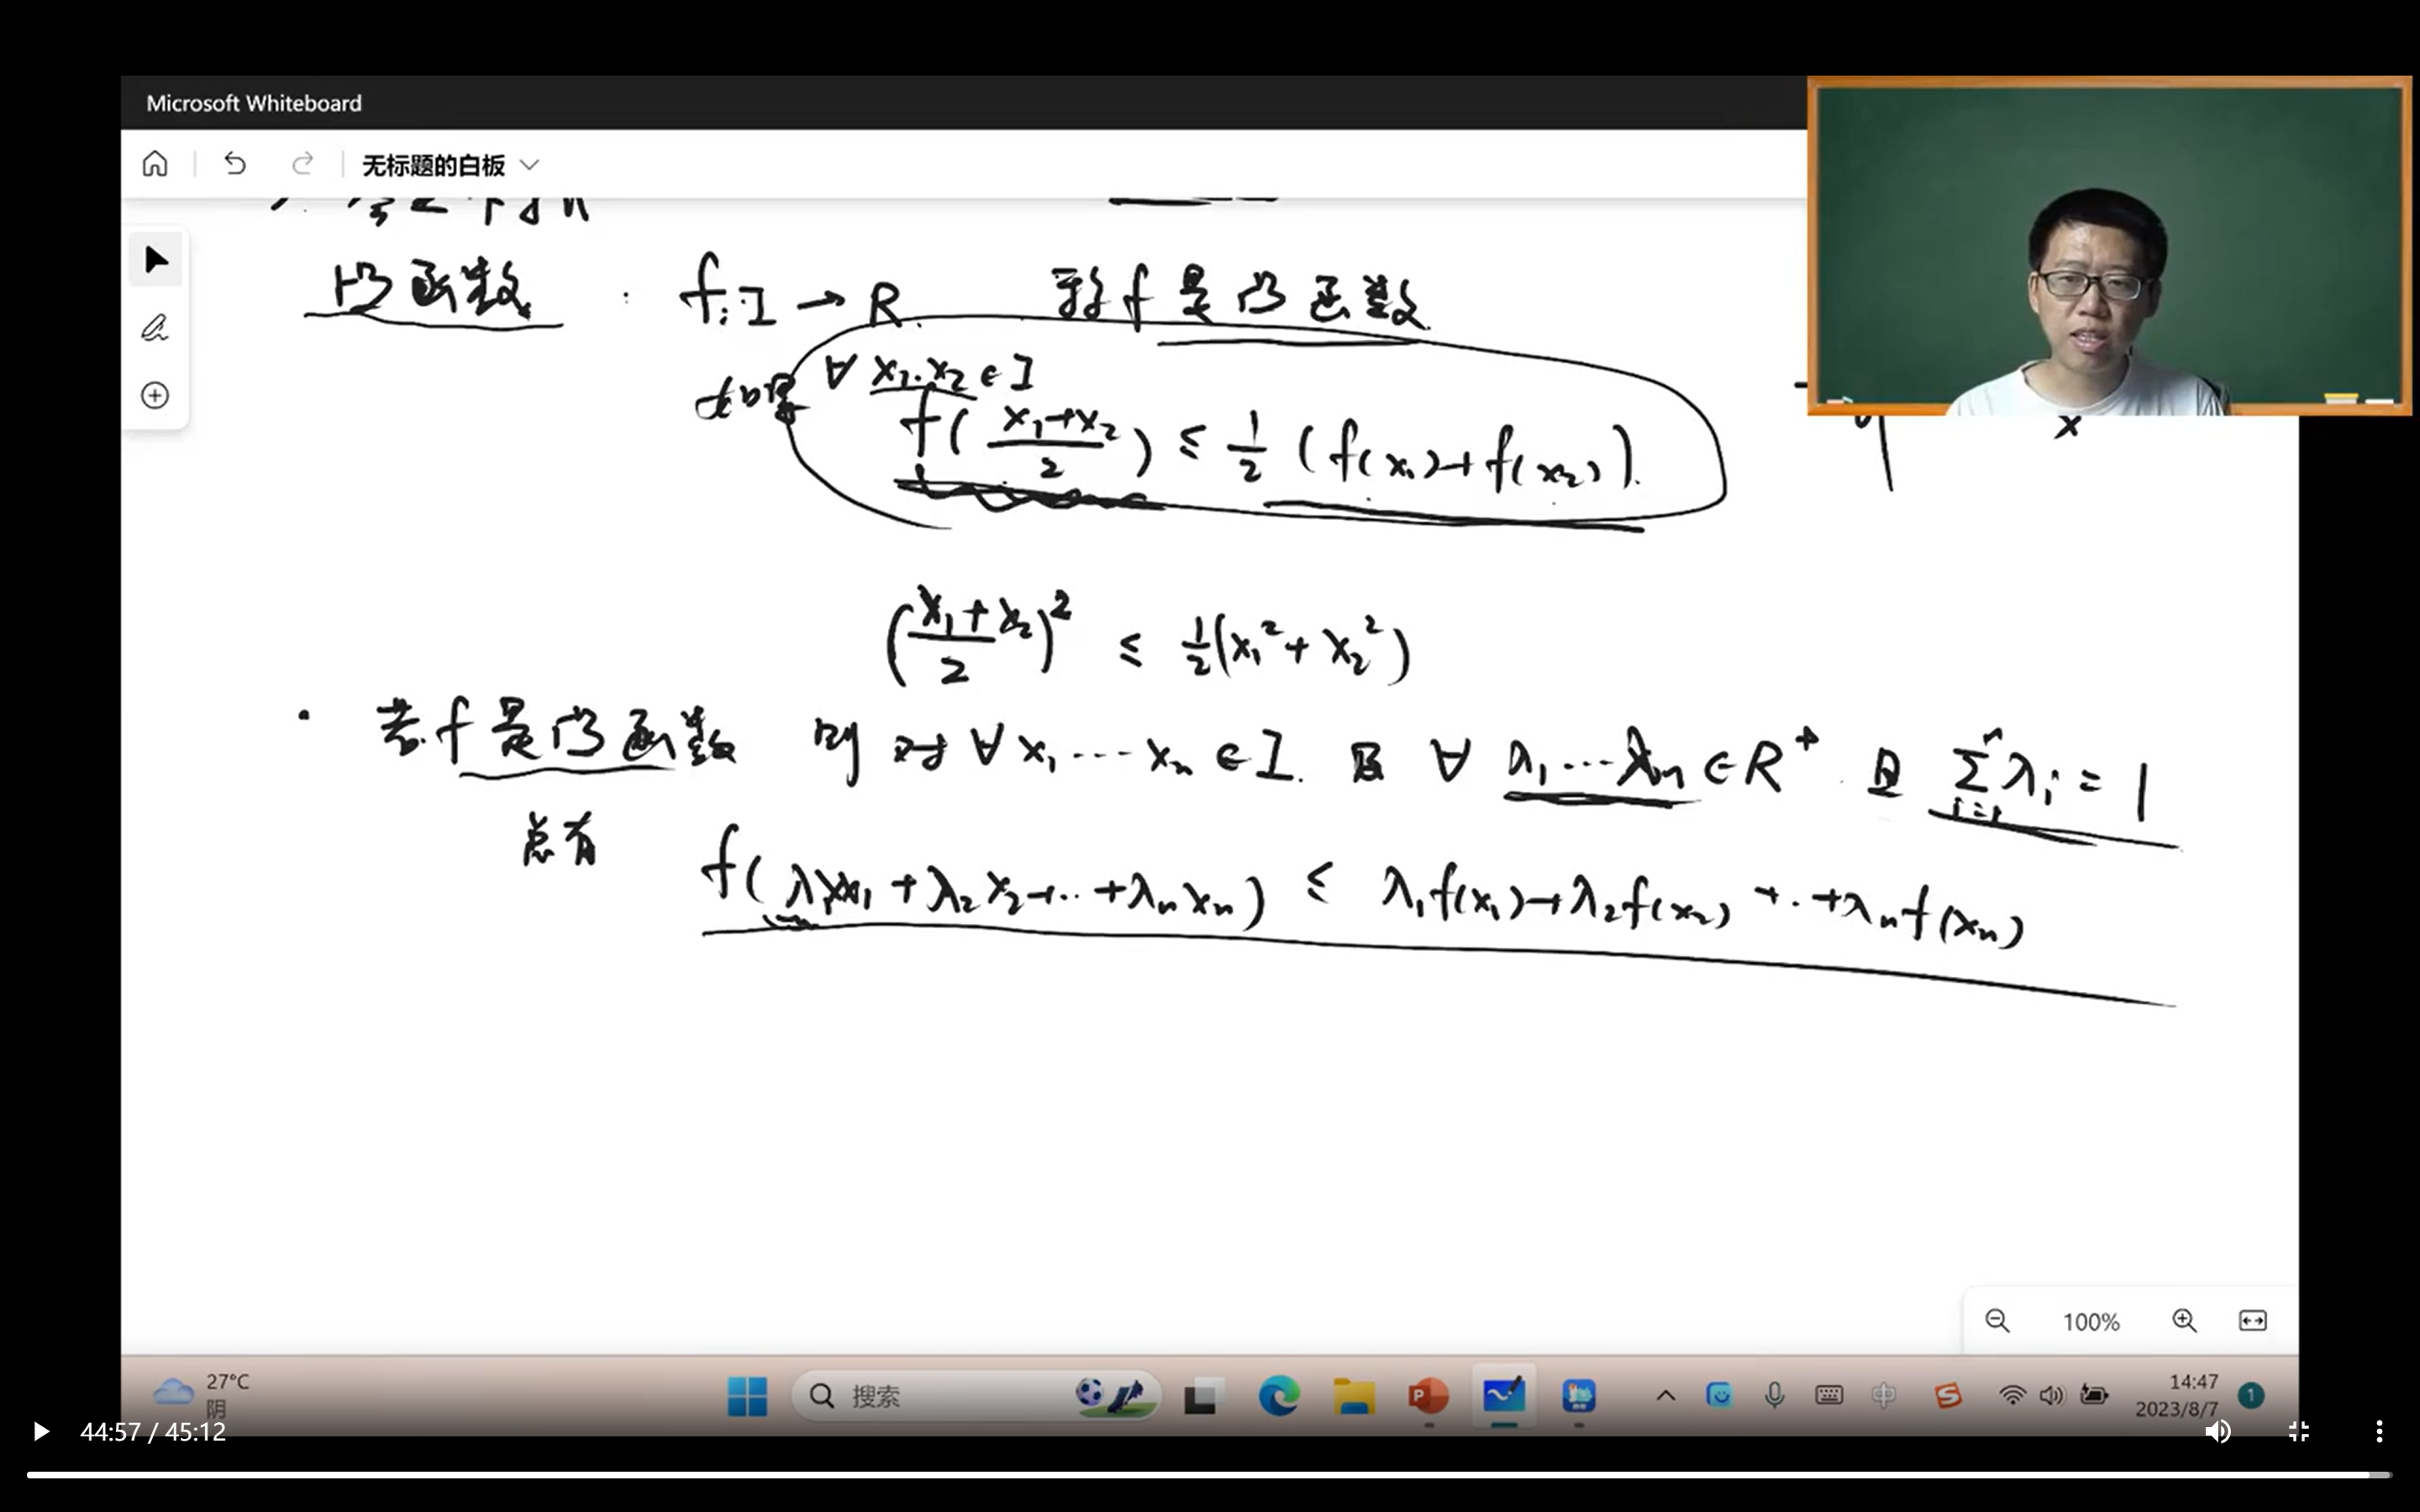 Microsoft Whiteboard
无标题的白板
凸函数 . f: I → R. 称f是凸函数.
如果 ∀ x₁.x₂ ∈ I
f( (x₁+x₂)/2 ) ≤ 1/2 (f(x₁)+f(x₂)).
x
((x₁+x₂)/2)² ≤ 1/2(x₁²+x₂²)
· 若f是凸函数 则对∀x₁⋯xₙ∈I. 及 ∀ λ₁⋯λₙ∈R⁺. 且 ∑ⁿᵢ₌₁λᵢ=1
总有 f(λ₁x₁+λ₂x₂+..+λₙxₙ) ≤ λ₁f(x₁)+λ₂f(x₂)+..+λₙf(xₙ)
100%
27°C
阴
搜索
中
14:47
2023/8/7
1
44:57 / 45:12